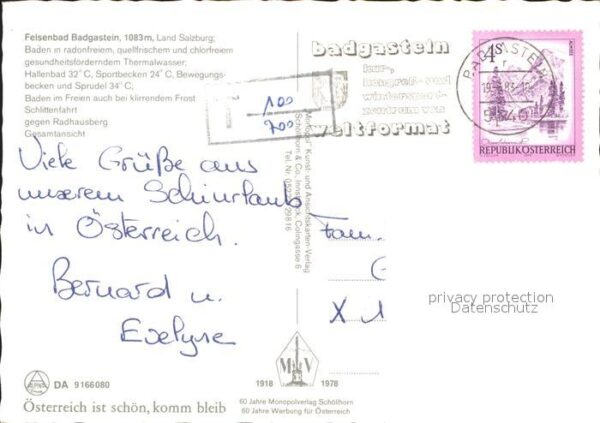 Felsenbad Badgastein, 1083m, Land Salzburg;
Baden in radonfreiem, quellfrischem und chlorfreiem
gesundheitsförderndem Thermalwasser;
Hallenbad 32° C, Sportbecken 24° C, Bewegungs-
becken und Sprudel 34° C;
Baden im Freien auch bei klirrendem Frost
Schlittenfahrt
gegen Radhausberg
Gesamtansicht
badgastein
kur-,
kongreß- und
wintersport-
zentrum von
weltformat
BADGASTEIN
4 S
REPUBLIK ÖSTERREICH
T
100
700
Viele Grüße aus
unserem Skiurlaub
in Österreich.
Bernard u.
Evelyne
Kunst- und Ansichtskarten-Verlag
Schöllhorn & Co., Innsbruck, Colingasse 6
Fam.
G
X 1
privacy protection
Datenschutz
M V
1918 1978
60 Jahre Monopolverlag Schöllhorn
60 Jahre Werbung für Österreich
DA 9166080
Österreich ist schön, komm bleib